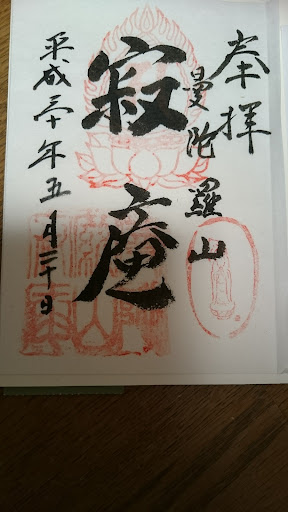 奉拝
曼陀羅山
寂庵
平成三十年五月二十日